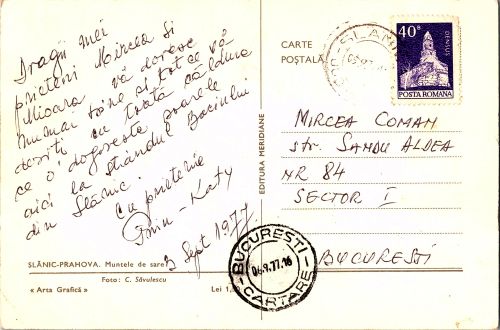 Dragii mei
prieteni Mircea și
Mioara vă doresc
numai bine și tot ce vă
doriți cu toată căldura
ce o dogorește soarele
aici la ștrandul Baciului
din Slănic.
Cu prietenie
Katy
3 Sept 1977
SLĂNIC-PRAHOVA. Muntele de sare
Foto: C. Săvulescu
« Arta Grafică »
Lei 1,
EDITURA MERIDIANE
CARTE
POȘTALĂ
40 B
DENSUȘ
POSTA ROMANA
MIRCEA COMAN
str. SANDU ALDEA
NR 84
SECTOR I
BUCUREȘTI
BUCUREȘTI
06.9.77.16
CARTARE